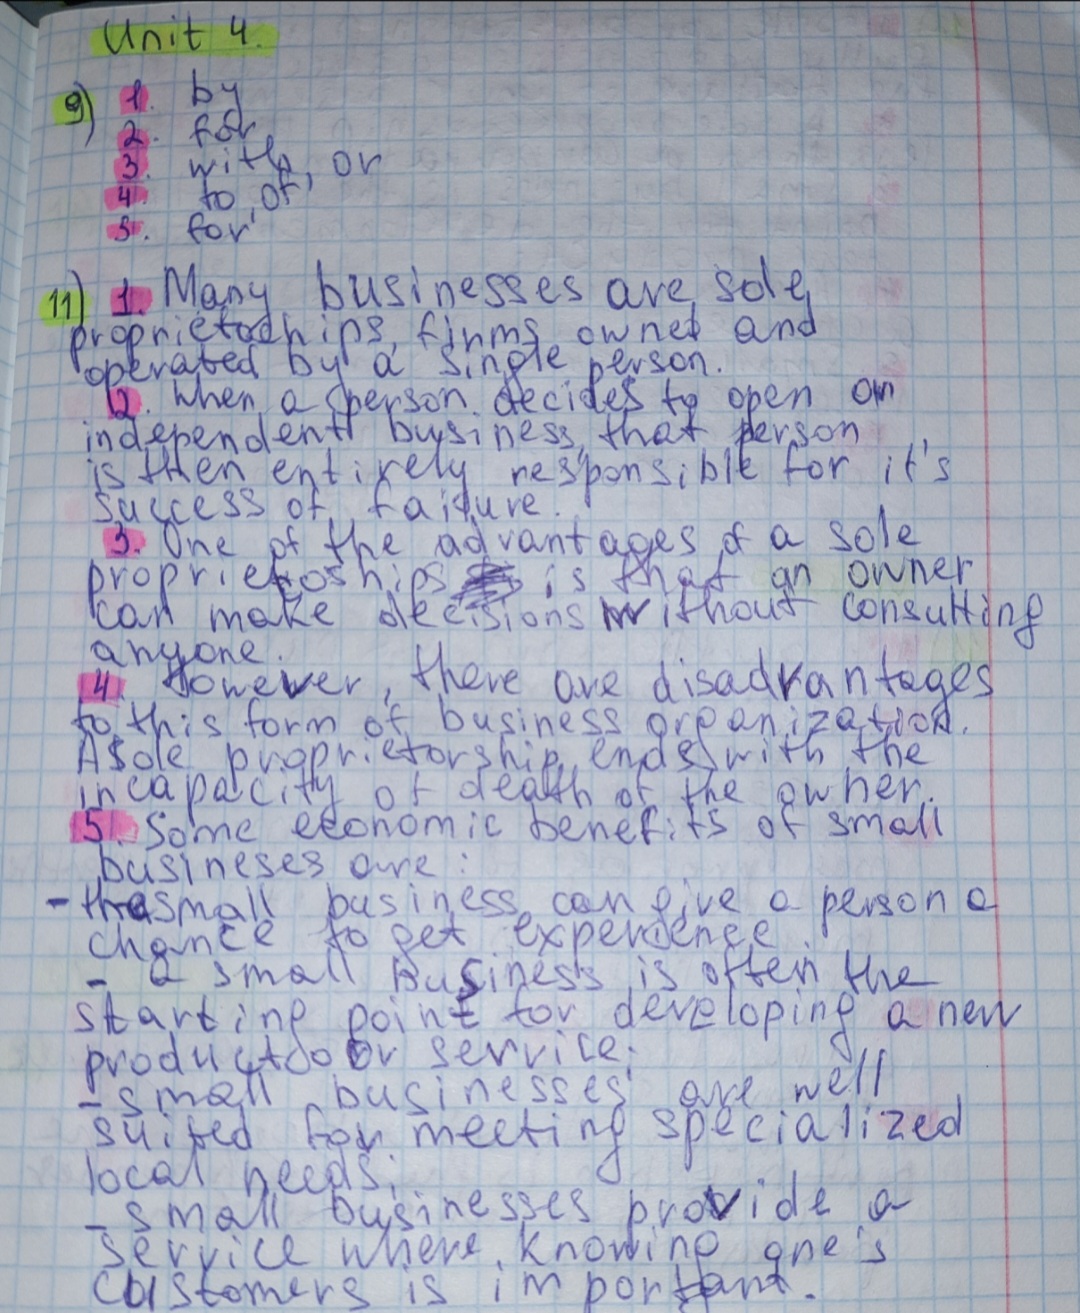 Unit 4.
9) 1. by
2. for
3. with, or
4. to, of
5. for
11) 1. Many businesses are sole
proprietoships, firms owned and
operated by a single person.
2. When a person decides to open an
independent business, that person
is then entirely responsible for it's
success of failure.
3. One of the advantages of a sole
proprietoships is that an owner
can make decisions without consulting
anyone.
4. However, there are disadvantages
to this form of business organization.
A sole proprietorship ends with the
incapacity of death of the owner.
5. Some economic benefits of small
busineses are:
- the small business can give a person a
chance to get experience.
- a small business is often the
starting point for developing a new
product or service;
- small businesses are well
suited for meeting specialized
local needs;
- small businesses provide a
service where knowing one's
customers is important.